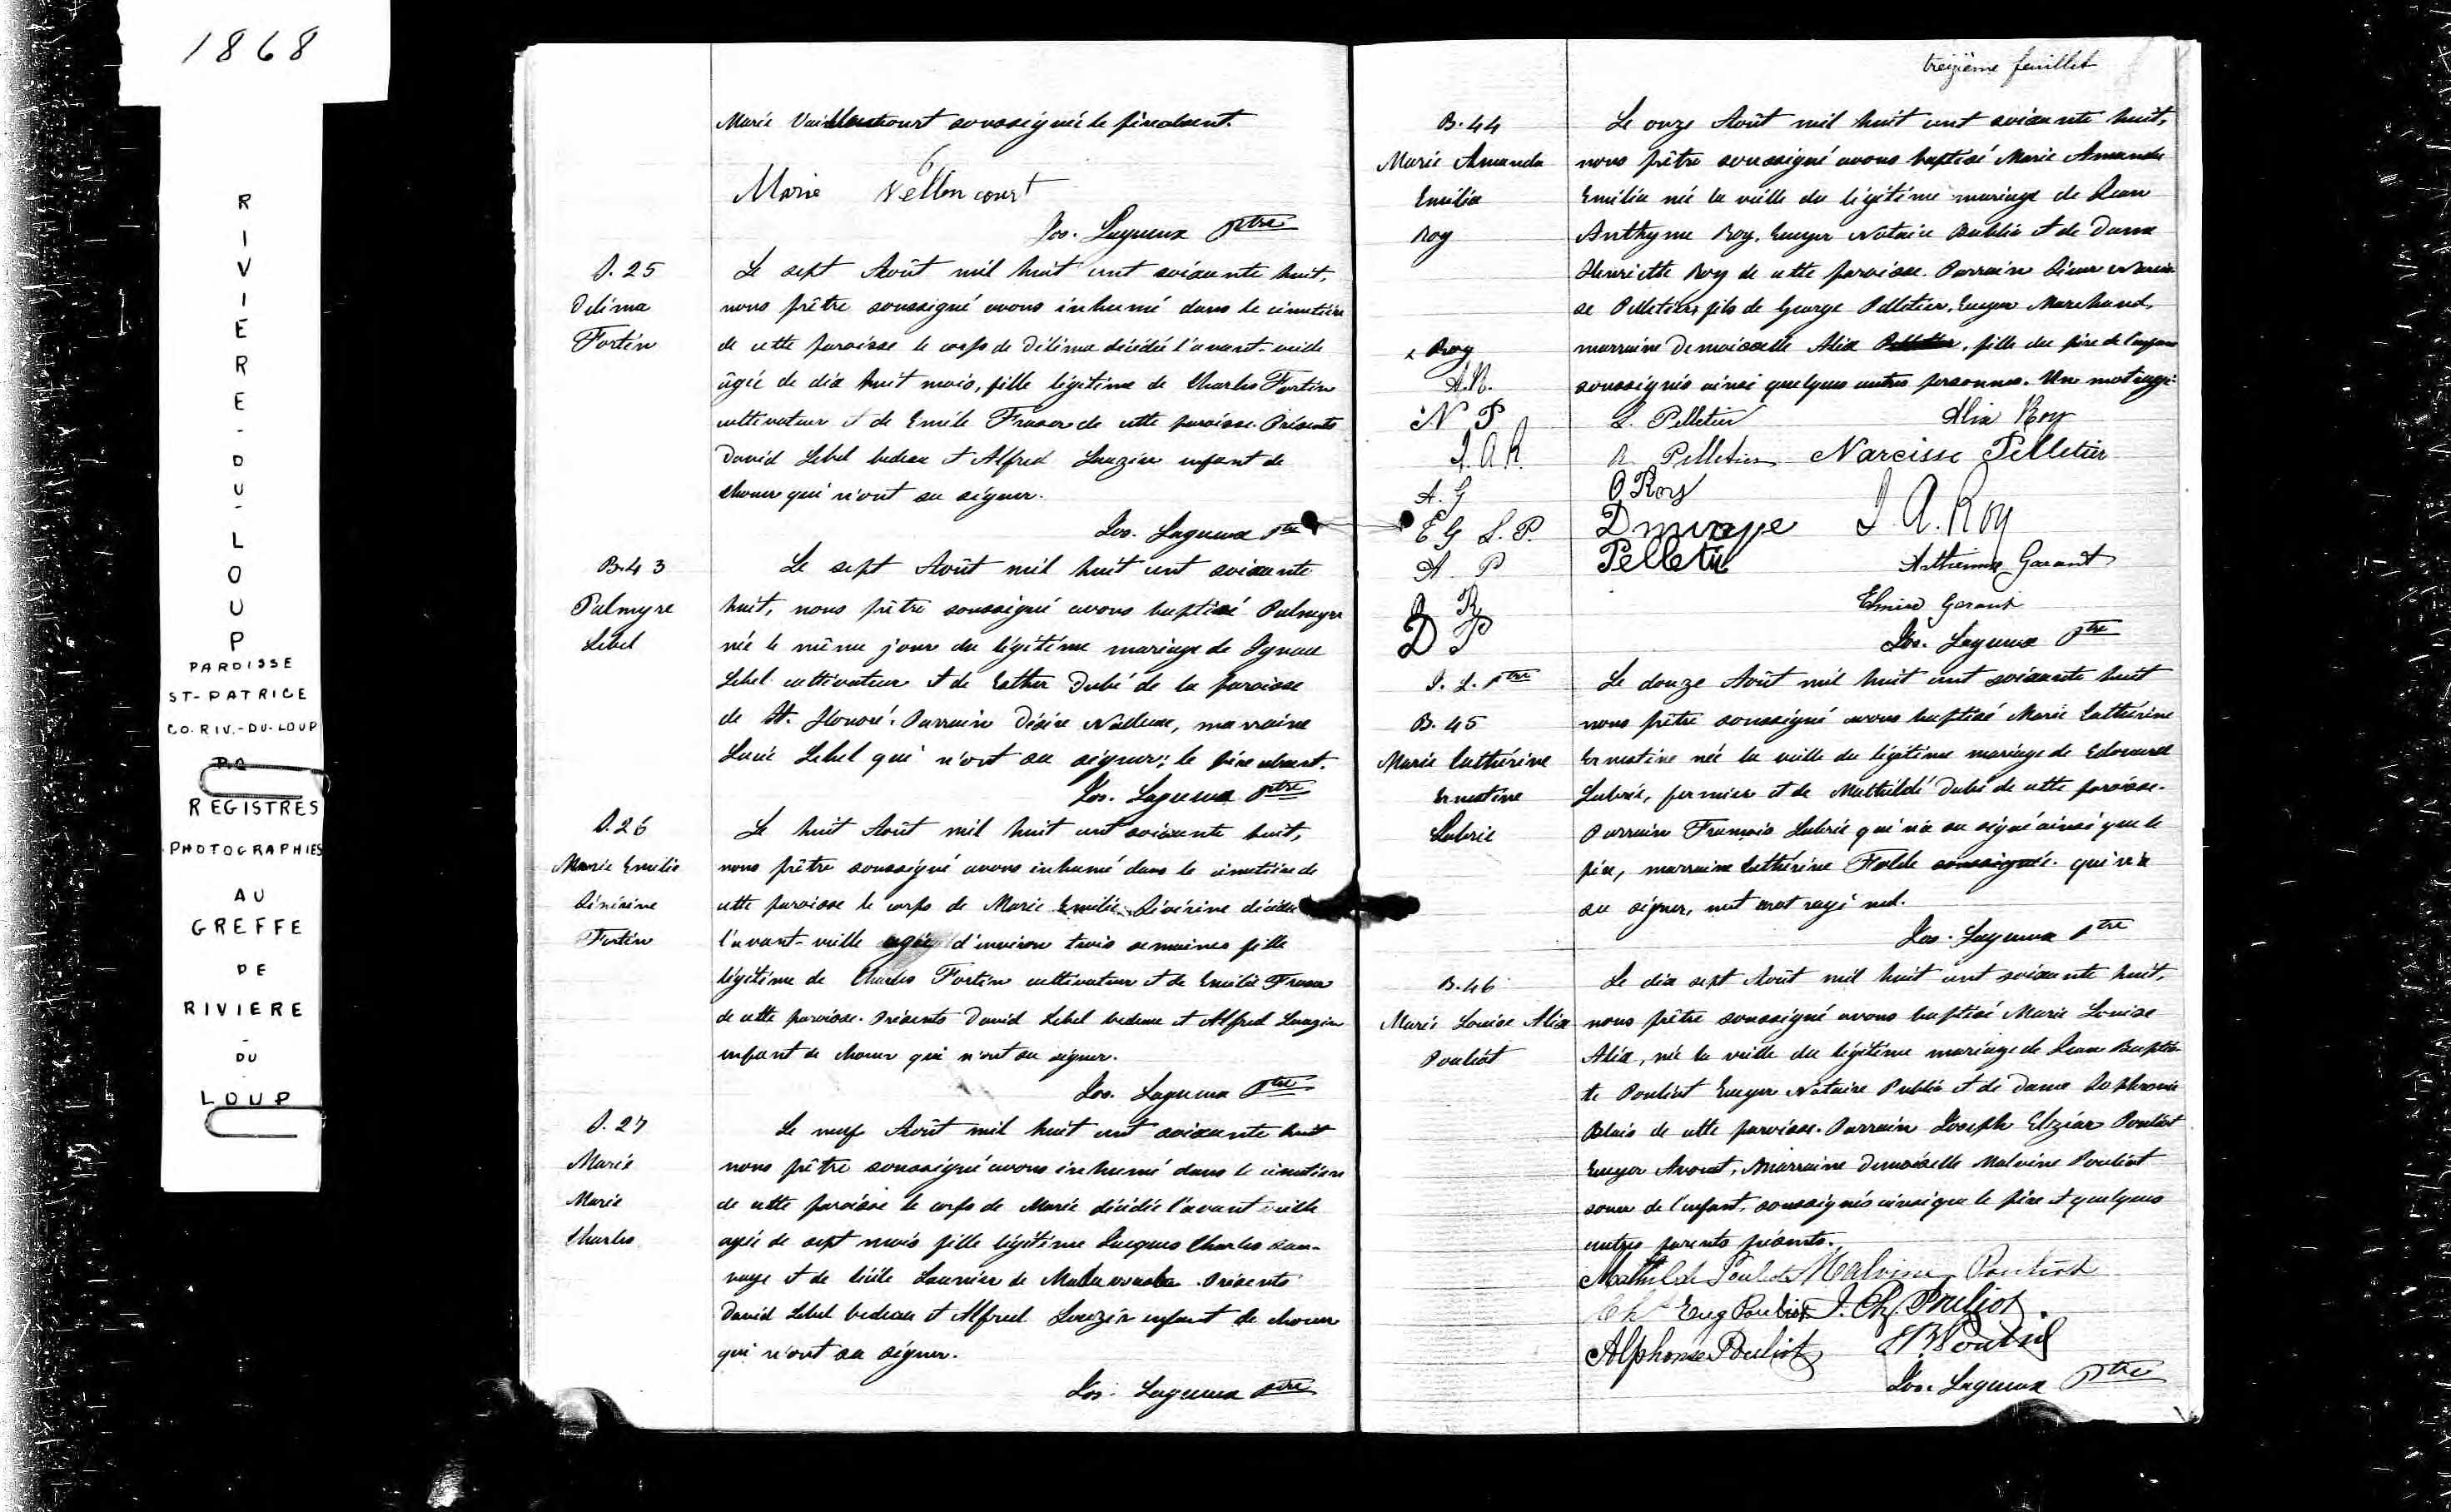 1868
RIVIERE-DU-LOUP
PAROISSE
ST-PATRICE
CO. RIV.-DU-LOUP
P.Q
REGISTRES
PHOTOGRAPHIES
AU
GREFFE
DE
RIVIERE
-
DU
-
LOUP
Marie Vaillancourt soussignée le père absent.
Marie Vellencourt
Jos. Lagueux Ptre
S. 25
Délima
Fortin
Le sept Août mil huit cent soixante huit,
nous prêtre soussigné avons inhumé dans le cimetière
de cette paroisse le corps de Délima décédée l'avant-veille
âgée de dix huit mois, fille légitime de Charles Fortin
cultivateur et de Emélie Fraser de cette paroisse. Présents
David Lebel bedeau et Alfred Lauzier enfant de
choeur qui n'ont su signer.
Jos. Lagueux Ptre
B. 43
Palmyre
Lebel
Le sept Août mil huit cent soixante
huit, nous prêtre soussigné avons baptisé Palmyre
née le même jour du légitime mariage de Ignace
Lebel cultivateur et de Esther Dubé de la paroisse
de St. Honoré. Parrain Désiré Nadeau, marraine
Lucie Lebel qui n'ont su signer; le père absent.
Jos. Lagueux Ptre
S. 26
Marie Emélie
Séverine
Fortin
Le huit Août mil huit cent soixante huit,
nous prêtre soussigné avons inhumé dans le cimetière de
cette paroisse le corps de Marie Emélie Séverine décédée
l'avant-veille agée d'environ trois semaines fille
légitime de Charles Fortin cultivateur et de Emélie Fraser
de cette paroisse. Présents David Lebel bedeau et Alfred Lauzier
enfant de choeur qui n'ont su signer.
Jos. Lagueux Ptre
S. 27
Marie
Marie
Charles
Le neuf Août mil huit cent soixante huit
nous prêtre soussigné avons inhumé dans le cimetière
de cette paroisse le corps de Marie décédée l'avant veille
agée de sept mois fille légitime Jacques Charles sau-
vage et de Cécile Launier de Présents
David Lebel bedeau et Alfred Lauzier enfant de choeur
qui n'ont su signer.
Jos. Lagueux Ptre
treizième feuillet
B. 44
Marie Amanda
Emélia
Roy
Le onze Août mil huit cent soixante huit,
nous prêtre soussigné avons baptisé Marie Amanda
Emélia née la veille du légitime mariage de Jean
Anthyme Roy, Ecuyer Notaire Public et de Dame
Henriette Roy de cette paroisse. Parrain Sieur Narcis-
se Pelletier, fils de George Pelletier, Ecuyer Marchand,
marraine Demoiselle Alix Pelletier, fille du père de l'enfant
soussignés ainsi quelques autres personnes. Un mot rayé
x Roy
A.R.
N P
J. A R.
A. G
E G L. P.
A P
D P
J. L. Ptre
L. Pelletier Alix Roy
A Pelletier Narcisse Pelletier
O Roy
J. A. Roy
Pelletier Arthémise Garant
Elmire Garant
Jos. Lagueux Ptre
B. 45
Marie Cathérine
Ernestine
Labrie
Le douze Août mil huit cent soixante huit
nous prêtre soussigné avons baptisé Marie Cathérine
Ernestine née la veille du légitime mariage de Edouard
Labrie, fermier et de Mathilde Dubé de cette paroisse.
Parrain François Labrie qui n'a su signé ainsi que le
père, marraine Cathérine soussignée. qui n'a
su signer, mot rayé nul.
Jos. Lagueux Ptre
B. 46
Marie Louise Alix
Pouliot
Le dix sept Août mil huit cent soixante huit,
nous prêtre soussigné avons baptisé Marie Louise
Alix, née la veille du légitime mariage de Jean Baptis-
te Pouliot Ecuyer Notaire Public et de Dame Sophronie
Blais de cette paroisse. Parrain Joseph Elzéar Pouliot
Ecuyer Avocat, Marraine Demoiselle Malvina Pouliot
soeur de l'enfant, soussignés ainsi que le père et quelques
autres parents présents.
Mathilde Pouliot Malvina Pouliot
Chs Eug Pouliot J. Ch Pouliot.
Alphonse Pouliot JB Pouliot
Jos. Lagueux Ptre